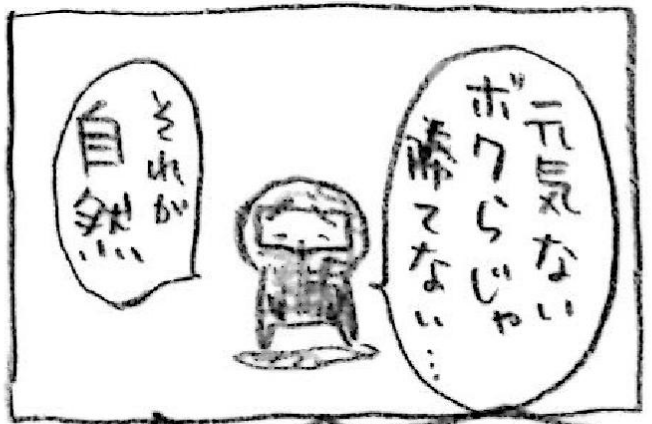 元気ない
ボクらじゃ
勝てない…
それが
自然